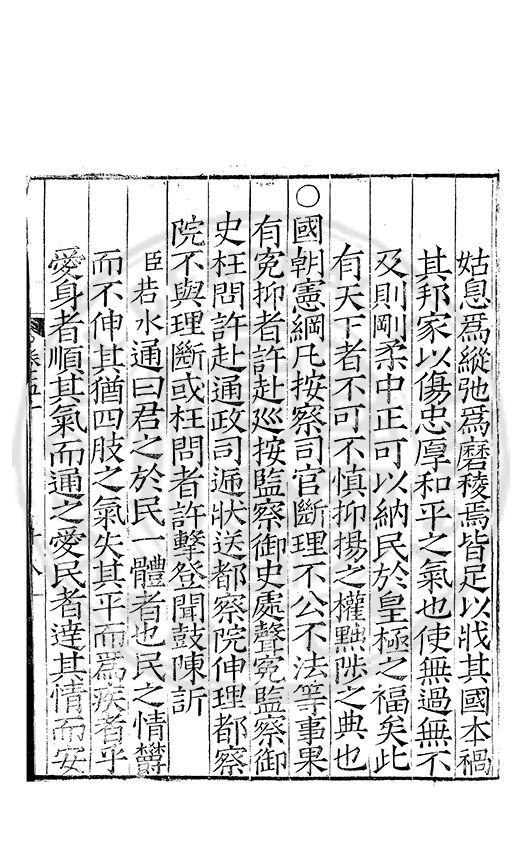 姑息爲縱弛爲磨稜焉皆足以戕其國本禍
其邦家以傷忠厚和平之氣也使無過無不
及則剛柔中正可以納民於皇極之福矣此
有天下者不可不慎抑揚之權黜陟之典也
○
國朝憲綱凡按察司官斷理不公不法等事果
有寃抑者許赴廵按監察御史處聲寃監察御
史枉問許赴通政司逓狀送都察院伸理都察
院不與理斷或枉問者許擊登聞鼓陳訴
臣若水通曰君之於民一體者也民之情欝
而不伸其猶四肢之氣失其平而爲疾者乎
愛身者順其氣而通之愛民者達其情而安